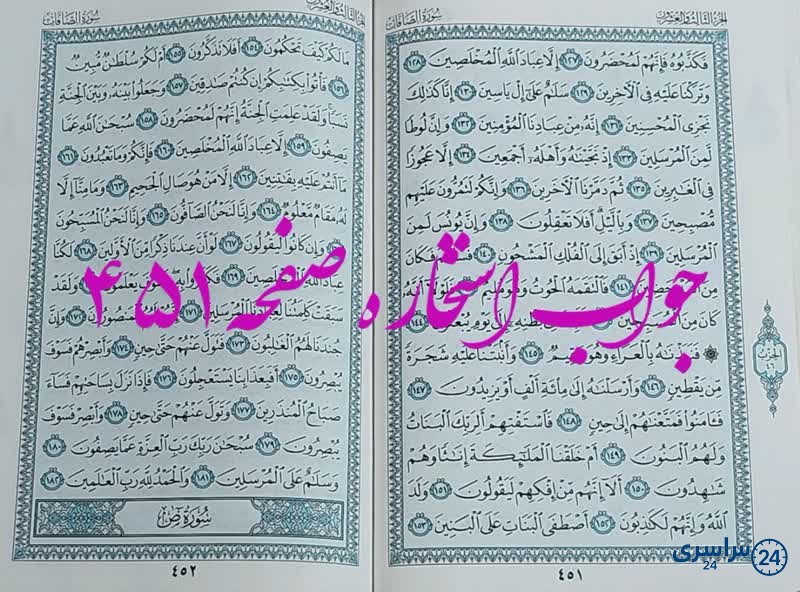 الجزء الثالث والعشرون سورة الصافات
فَكَذَّبُوهُ فَإِنَّهُمْ لَمُحْضَرُونَ ١٢٧ إِلَّا عِبَادَ ٱللَّهِ ٱلْمُخْلَصِينَ ١٢٨
وَتَرَكْنَا عَلَيْهِ فِى ٱلْءَاخِرِينَ ١٢٩ سَلَٰمٌ عَلَىٰٓ إِلْ يَاسِينَ ١٣٠ إِنَّا كَذَٰلِكَ
نَجْزِى ٱلْمُحْسِنِينَ ١٣١ إِنَّهُۥ مِنْ عِبَادِنَا ٱلْمُؤْمِنِينَ ١٣٢ وَإِنَّ لُوطًا
لَّمِنَ ٱلْمُرْسَلِينَ ١٣٣ إِذْ نَجَّيْنَٰهُ وَأَهْلَهُۥٓ أَجْمَعِينَ ١٣٤ إِلَّا عَجُوزًا
فِى ٱلْغَٰبِرِينَ ١٣٥ ثُمَّ دَمَّرْنَا ٱلْءَاخَرِينَ ١٣٦ وَإِنَّكُمْ لَتَمُرُّونَ عَلَيْهِم
مُّصْبِحِينَ ١٣٧ وَبِٱلَّيْلِ أَفَلَا تَعْقِلُونَ ١٣٨ وَإِنَّ يُونُسَ لَمِنَ
ٱلْمُرْسَلِينَ ١٣٩ إِذْ أَبَقَ إِلَى ٱلْفُلْكِ ٱلْمَشْحُونِ ١٤٠ فَكَانَ
مِنَ ١٤١ فَٱلْتَقَمَهُ ٱلْحُوتُ وَهُوَ مُلِيمٌ أَنَّهُۥ
كَانَ مِنَ ٱلْمُسَبِّحِينَ بَطْنِهِۦٓ إِلَىٰ يَوْمِ يُبْعَثُونَ ١٤٤
۞ فَنَبَذْنَٰهُ بِٱلْعَرَآءِ وَهُوَ سَقِيمٌ ١٤٥ وَأَنۢبَتْنَا عَلَيْهِ شَجَرَةً
مِّن يَقْطِينٍ ١٤٦ وَأَرْسَلْنَٰهُ إِلَىٰ مِا۟ئَةِ أَلْفٍ أَوْ يَزِيدُونَ ١٤٧
فَـَٔامَنُوا۟ فَمَتَّعْنَٰهُمْ إِلَىٰ حِينٍ ١٤٨ فَٱسْتَفْتِهِمْ أَلِرَبِّكَ ٱلْبَنَاتُ
وَلَهُمُ ٱلْبَنُونَ ١٤٩ أَمْ خَلَقْنَا ٱلْمَلَٰٓئِكَةَ إِنَٰثًا وَهُمْ
شَٰهِدُونَ ١٥٠ أَلَآ إِنَّهُم مِّنْ إِفْكِهِمْ لَيَقُولُونَ ١٥١ وَلَدَ
ٱللَّهُ وَإِنَّهُمْ لَكَٰذِبُونَ ١٥٢ أَصْطَفَى ٱلْبَنَاتِ عَلَى ٱلْبَنِينَ ١٥٣
٤٥١
الحزب ٤٦
سورة الصافات الجزء الثالث والعشرون
مَا لَكُمْ كَيْفَ تَحْكُمُونَ ١٥٤ أَفَلَا تَذَكَّرُونَ ١٥٥ أَمْ لَكُمْ سُلْطَٰنٌ مُّبِينٌ
١٥٦ فَأْتُوا۟ بِكِتَٰبِكُمْ إِن كُنتُمْ صَٰدِقِينَ ١٥٧ وَجَعَلُوا۟ بَيْنَهُۥ وَبَيْنَ ٱلْجِنَّةِ
نَسَبًا وَلَقَدْ عَلِمَتِ ٱلْجِنَّةُ إِنَّهُمْ لَمُحْضَرُونَ ١٥٨ سُبْحَٰنَ ٱللَّهِ عَمَّا
يَصِفُونَ ١٥٩ إِلَّا عِبَادَ ٱللَّهِ ٱلْمُخْلَصِينَ ١٦٠ فَإِنَّكُمْ وَمَا تَعْبُدُونَ ١٦١
مَآ أَنتُمْ عَلَيْهِ بِفَٰتِنِينَ ١٦٢ إِلَّا مَنْ هُوَ صَالِ ٱلْجَحِيمِ ١٦٣ وَمَا مِنَّآ إِلَّا
لَهُۥ مَقَامٌ مَّعْلُومٌ ١٦٤ وَإِنَّا لَنَحْنُ ٱلصَّآفُّونَ ١٦٥ وَإِنَّا لَنَحْنُ ٱلْمُسَبِّحُونَ
وَإِن كَانُوا۟ لَيَقُولُونَ ١٦٧ لَوْ أَنَّ عِندَنَا ذِكْرًا مِّنَ ٱلْأَوَّلِينَ ١٦٨ لَكُنَّا
عِبَادَ ٱللَّهِ ٱلْمُخْلَصِينَ ١٦٩ فَكَفَرُوا۟ يَعْلَمُونَ وَلَقَدْ
سَبَقَتْ كَلِمَتُنَا لِعِبَادِنَا ٱلْمُرْسَلِينَ ١٧١ ٱلْمَنصُورُونَ ١٧٢ وَإِنَّ
جُندَنَا لَهُمُ ٱلْغَٰلِبُونَ ١٧٣ فَتَوَلَّ عَنْهُمْ حَتَّىٰ حِينٍ ١٧٤ وَأَبْصِرْهُمْ فَسَوْفَ
يُبْصِرُونَ ١٧٥ أَفَبِعَذَابِنَا يَسْتَعْجِلُونَ ١٧٦ فَإِذَا نَزَلَ بِسَاحَتِهِمْ فَسَآءَ
صَبَاحُ ٱلْمُنذَرِينَ ١٧٧ وَتَوَلَّ عَنْهُمْ حَتَّىٰ حِينٍ ١٧٨ وَأَبْصِرْ فَسَوْفَ
يُبْصِرُونَ ١٧٩ سُبْحَٰنَ رَبِّكَ رَبِّ ٱلْعِزَّةِ عَمَّا يَصِفُونَ ١٨٠
وَسَلَٰمٌ عَلَى ٱلْمُرْسَلِينَ ١٨١ وَٱلْحَمْدُ لِلَّهِ رَبِّ ٱلْعَٰلَمِينَ ١٨٢
سُورَةُ صٓ
٤٥٢
جواب استخاره صفحه ۴۵۱
سراسری 24
24